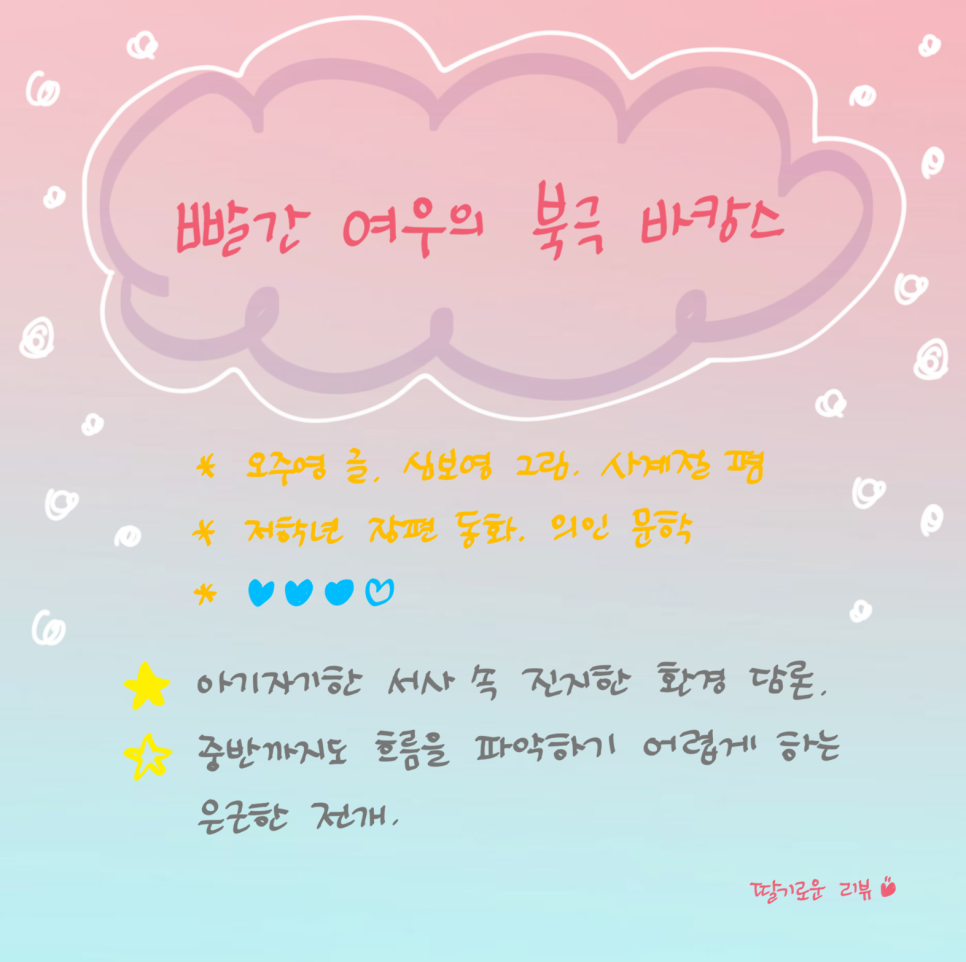 빨간 여우의 북극 바캉스
* 오주영 글, 심보영 그림. 사계절 펌
* 저학년 장편 동화. 의인 문학
* ♥♥♥♡
★ 아기자기한 서사 속 진지한 환경 담론.
☆ 중반까지도 흐름을 파악하기 어렵게 하는
은근한 전개.
딸기로운 리뷰